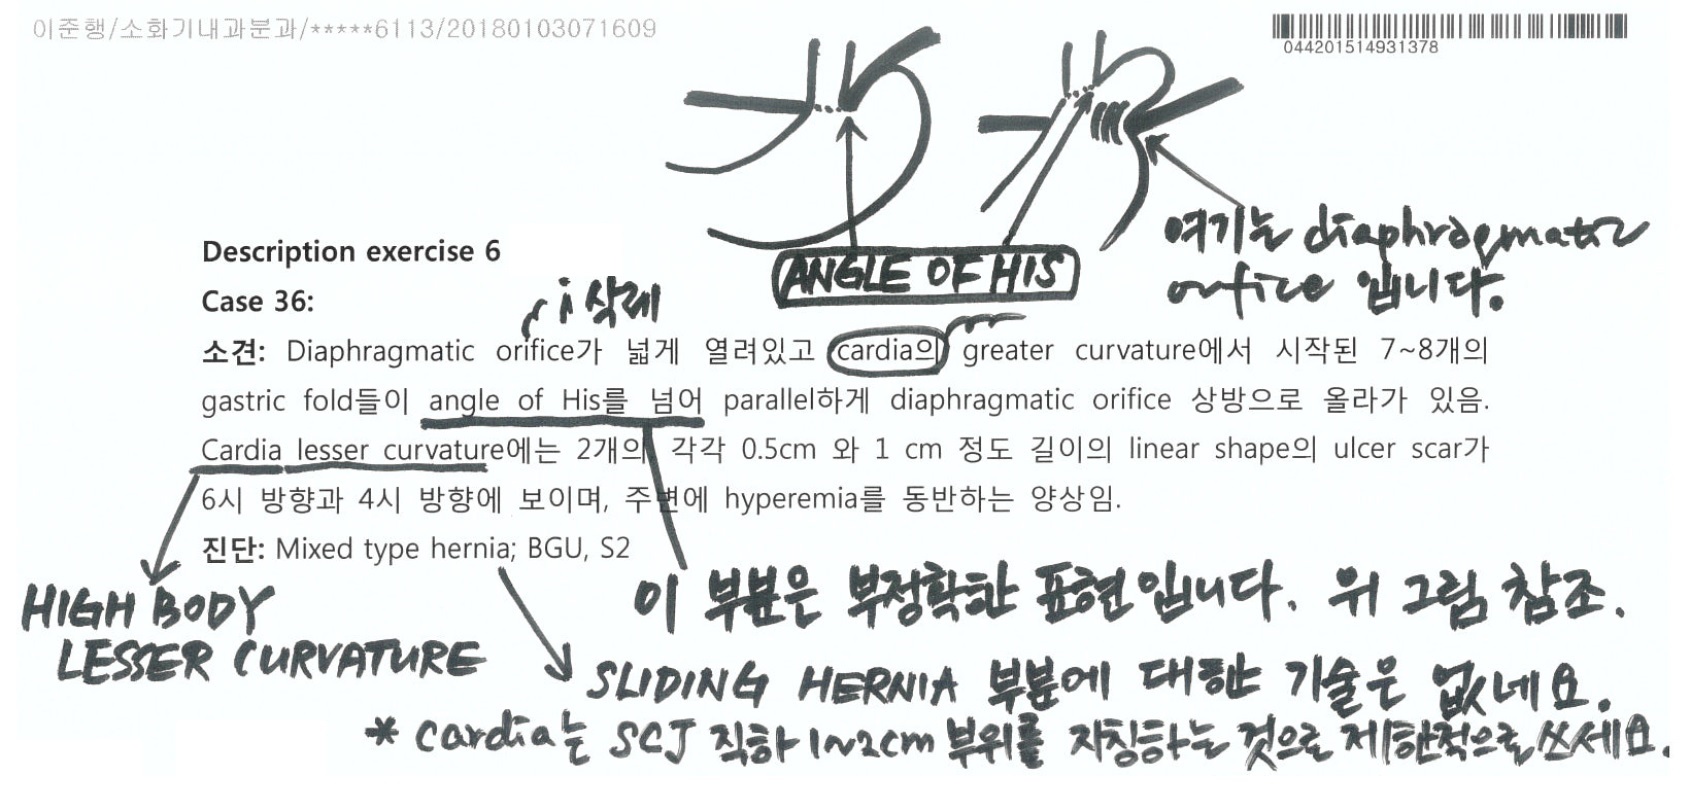 이준행/소화기내과분과/*****6113/20180103071609
044201514931378
여기는 diaphragmatic
orifice 입니다.
ANGLE OF HIS
Description exercise 6
Case 36:
i 삭제
소견: Diaphragmatic orifice가 넓게 열려있고 cardia의 greater curvature에서 시작된 7~8개의
gastric fold들이 angle of His를 넘어 parallel하게 diaphragmatic orifice 상방으로 올라가 있음.
Cardia lesser curvature에는 2개의 각각 0.5cm 와 1 cm 정도 길이의 linear shape의 ulcer scar가
6시 방향과 4시 방향에 보이며, 주변에 hyperemia를 동반하는 양상임.
진단: Mixed type hernia; BGU, S2
이 부분은 부정확한 표현입니다. 위 그림 참조.
HIGH BODY
LESSER CURVATURE
SLIDING HERNIA 부분에 대한 기술은 없네요.
* cardia는 SCJ 직하 1~2cm 부위를 지칭하는 것으로 제한적으로 쓰세요.